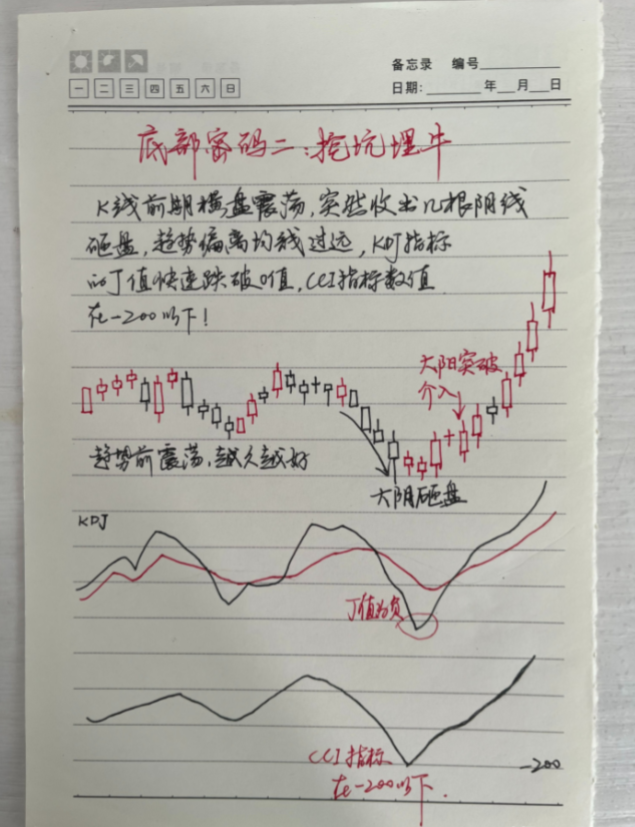 备忘录 编号
一 二 三 四 五 六 日
日期: 年 月 日
底部密码二:挖坑埋牛
K线前期横盘震荡,突然收出几根阴线
砸盘,趋势偏离均线过远,KDJ指标
的J值快速跌破0值,CCI指标数值
在-200以下!
大阳突破
介入
趋势前震荡,越久越好
大阴砸盘
KDJ
J值为负
CCI指标
-200
在-200以下.